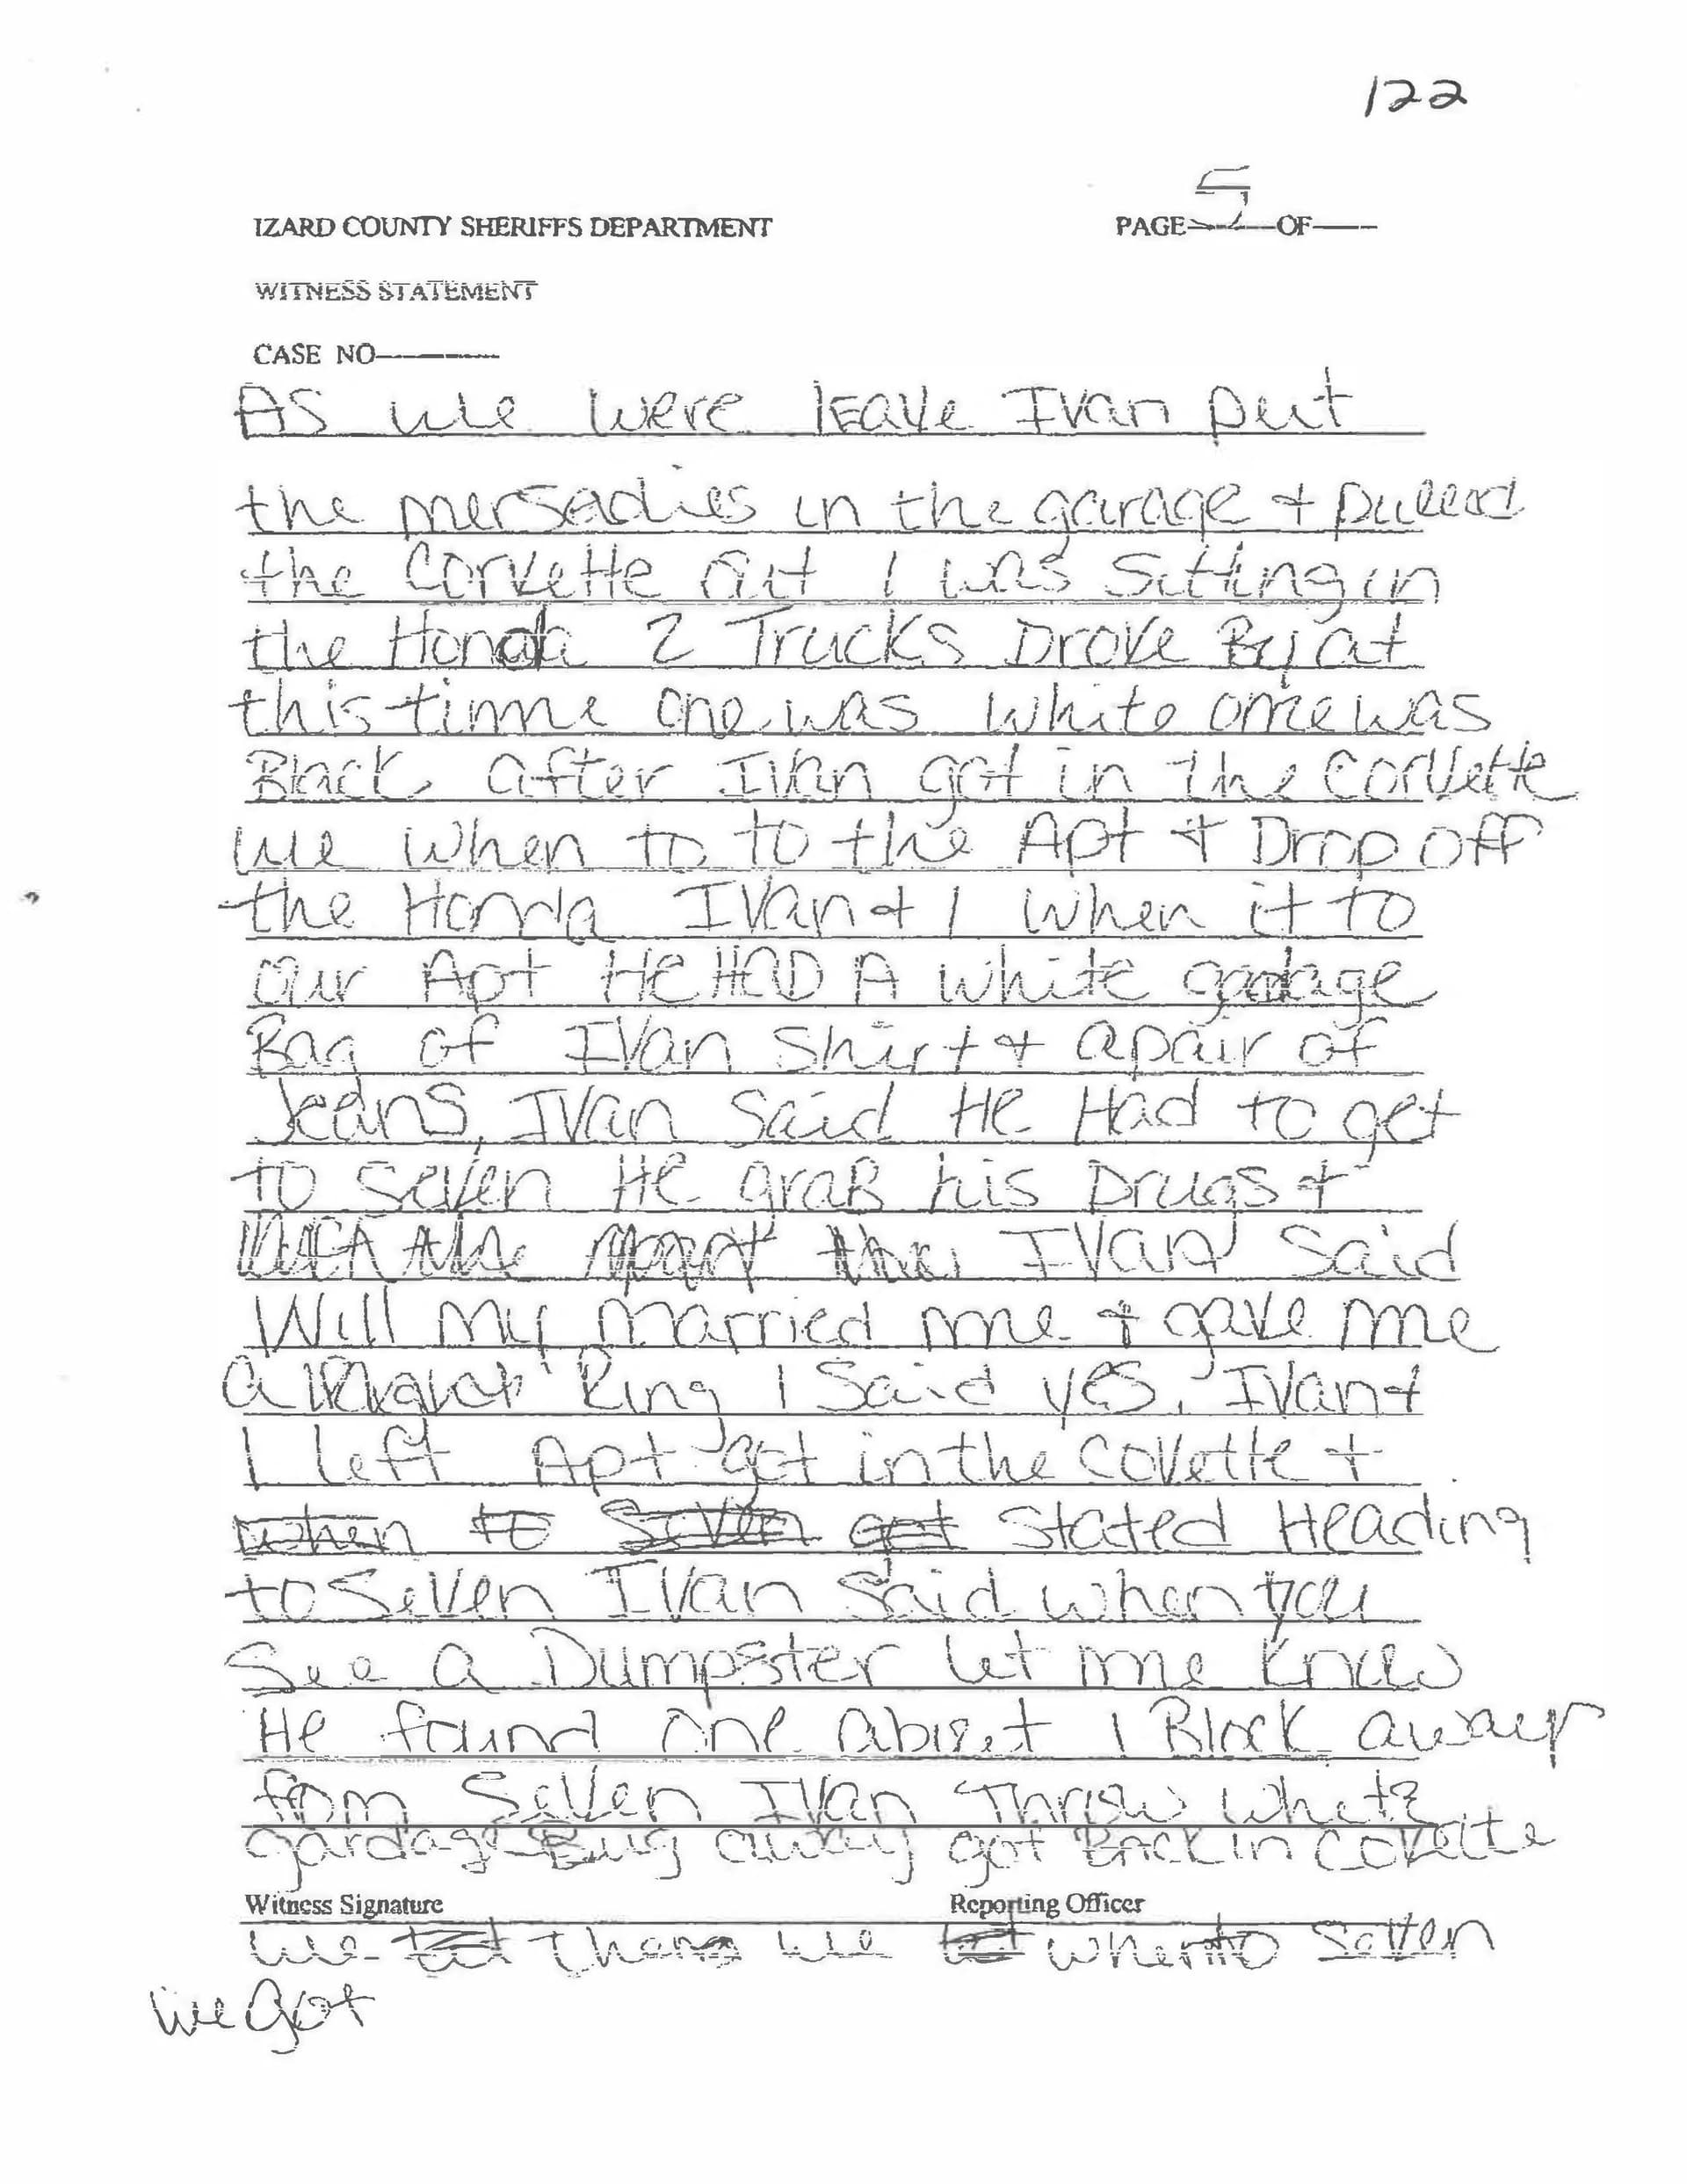 122
5
IZARD COUNTY SHERIFFS DEPARTMENT PAGE OF
WITNESS STATEMENT
CASE NO
AS we were leave Ivan put
the mersadies in the garage + pulled
the Corvette out I was sitting in
the Honda 2 Trucks Drove By at
this time one was white one was
Black after Ivan got in the corvette
we when to to the Apt + Drop off
the Honda Ivan + I when it to
our Apt He HAD A white gardage
Bag of Ivan Shirt + apair of
Jeans, Ivan said He Had to get
to seven He graB his Drugs +
the Ivan said
Will my married me + gave me
a Ring I said yes. Ivan +
I left Apt got in the covette +
when to seven got stated Heading
to seven Ivan said when you
see a Dumpster let me know
He found one about 1 Block away
from seven Ivan Throw white
gardage Bag away got Back in covette
Witness Signature Reporting Officer
we we when to seven
we got